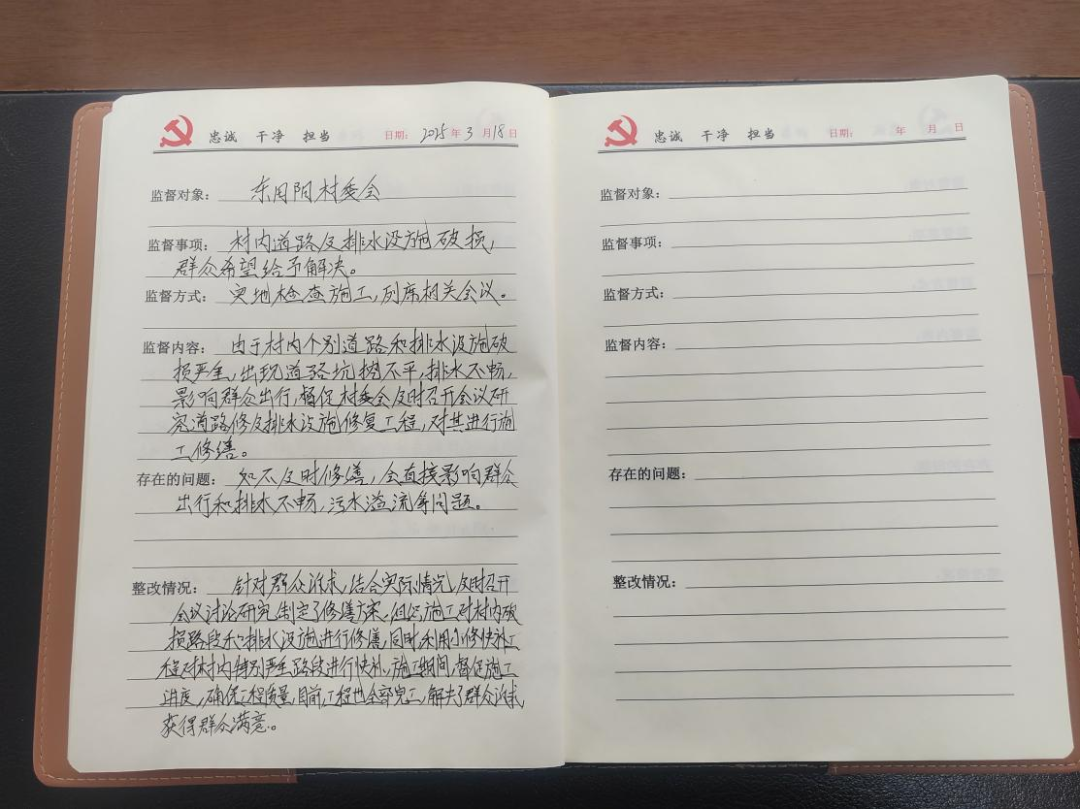 忠诚 干净 担当 日期: 2025年3月18日
监督对象: 东周阳村委会
监督事项: 村内道路及排水设施破损,
群众希望给予解决。
监督方式: 实地检查施工,列席相关会议。
监督内容: 由于村内个别道路和排水设施破
损严重,出现道路坑坳不平,排水不畅,
影响群众出行,督促村委会及时召开会议研
究道路修及排水设施修复工程,对其进行施
工修缮。
存在的问题: 如不及时修缮,会直接影响群众
出行和排水不畅,污水溢流等问题。
整改情况: 针对群众诉求,结合实际情况,及时召开
会议讨论研究制定了修缮方案,组织施工对村内破
损路段和排水设施进行修缮,同时利用小修快补工
程对村内特别严重路段进行快补,施工期间,督促施工
进度,确保工程质量,目前工程也全部完工,解决了群众诉求
获得群众满意。
忠诚 干净 担当 日期: 年 月 日
监督对象:
监督事项:
监督方式:
监督内容:
存在的问题:
整改情况: